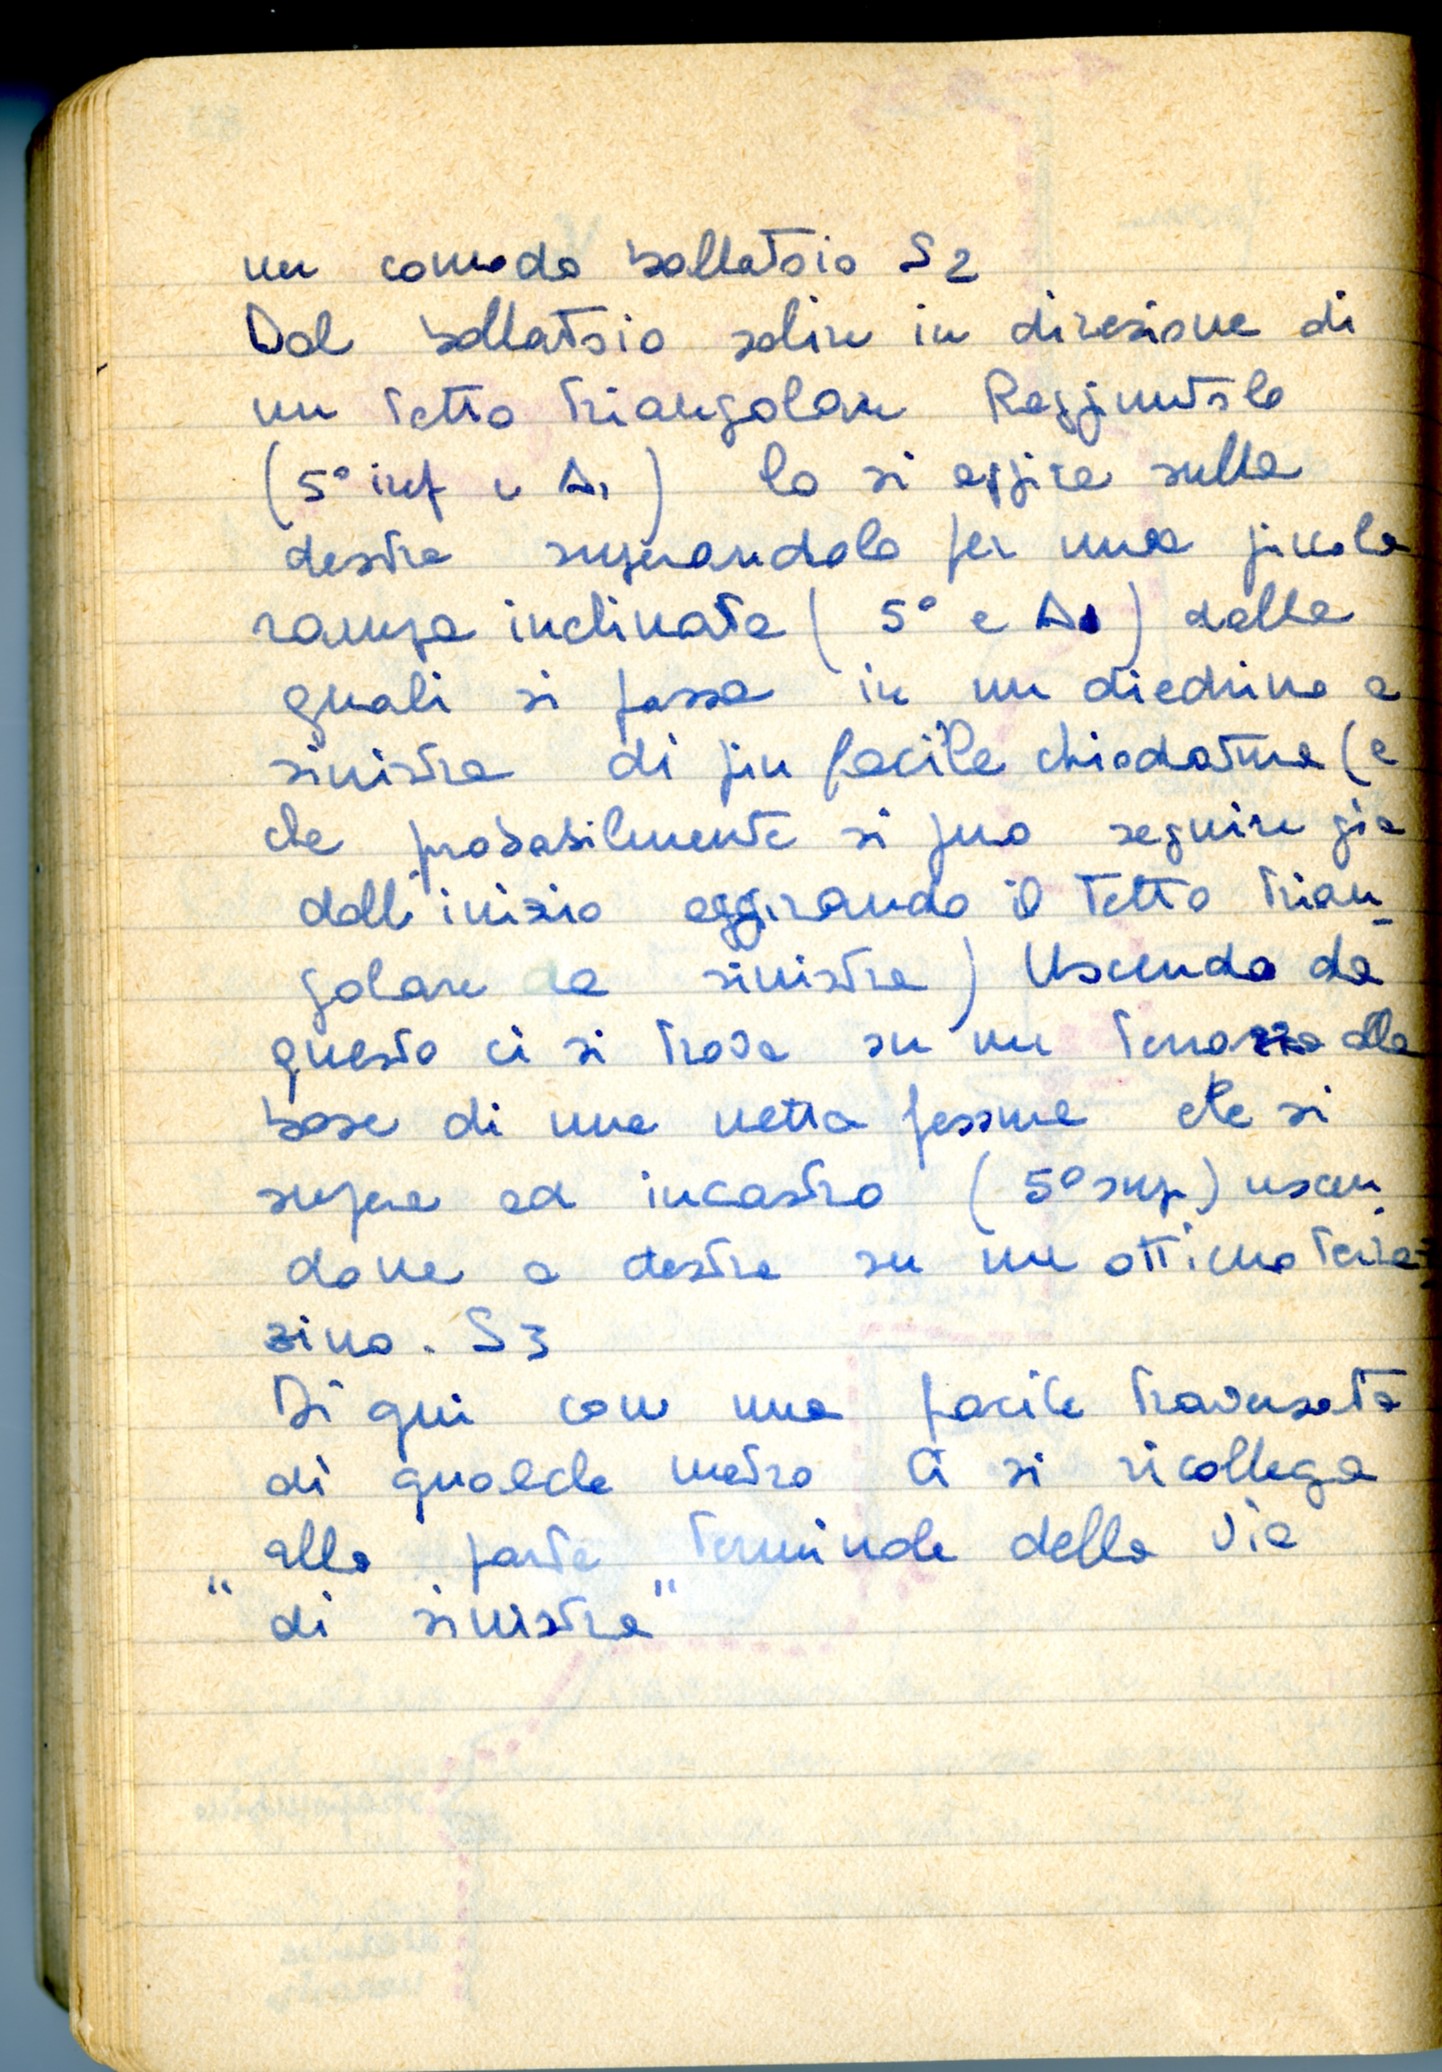 un comodo ballatoio S2
Dal ballatoio salire in direzione di
un tetto triangolare Raggiuntolo
(5° inf e A1) lo si aggira sulla
destra superandolo per una piccola
rampa inclinata (5° e A1) dalla
quali si passa in un diedrino a
sinistra di piu facile chiodatura (e
che probabilmente si puo seguire gia
dall'inizio aggirando il tetto trian_
golare da sinistra) Uscendo da
questo ci si trova su un terrazzo alla
base di una netta fessura che si
supera ad incastro (5° sup.) uscen_
done a destra su un ottimo terraz
zino. S3
Di qui con una facile traversata
di qualche metro ci si ricollega
alla parte terminale della via
"di sinistra"